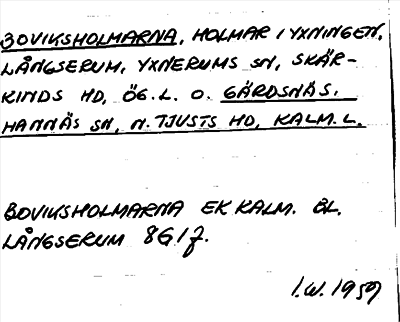 BOVIKSHOLMARNA, HOLMAR I YXNINGEN,
LÅNGSERUM, YXNERUMS SN, SKÄR-
KINDS HD, ÖG. L. O. GÄRDSNÄS,
HANNÄS SN, N. TJUSTS HD, KALM. L.
BOVIKSHOLMARNA EK KALM. BL.
LÅNGSERUM 8G1f.
I.W. 1959